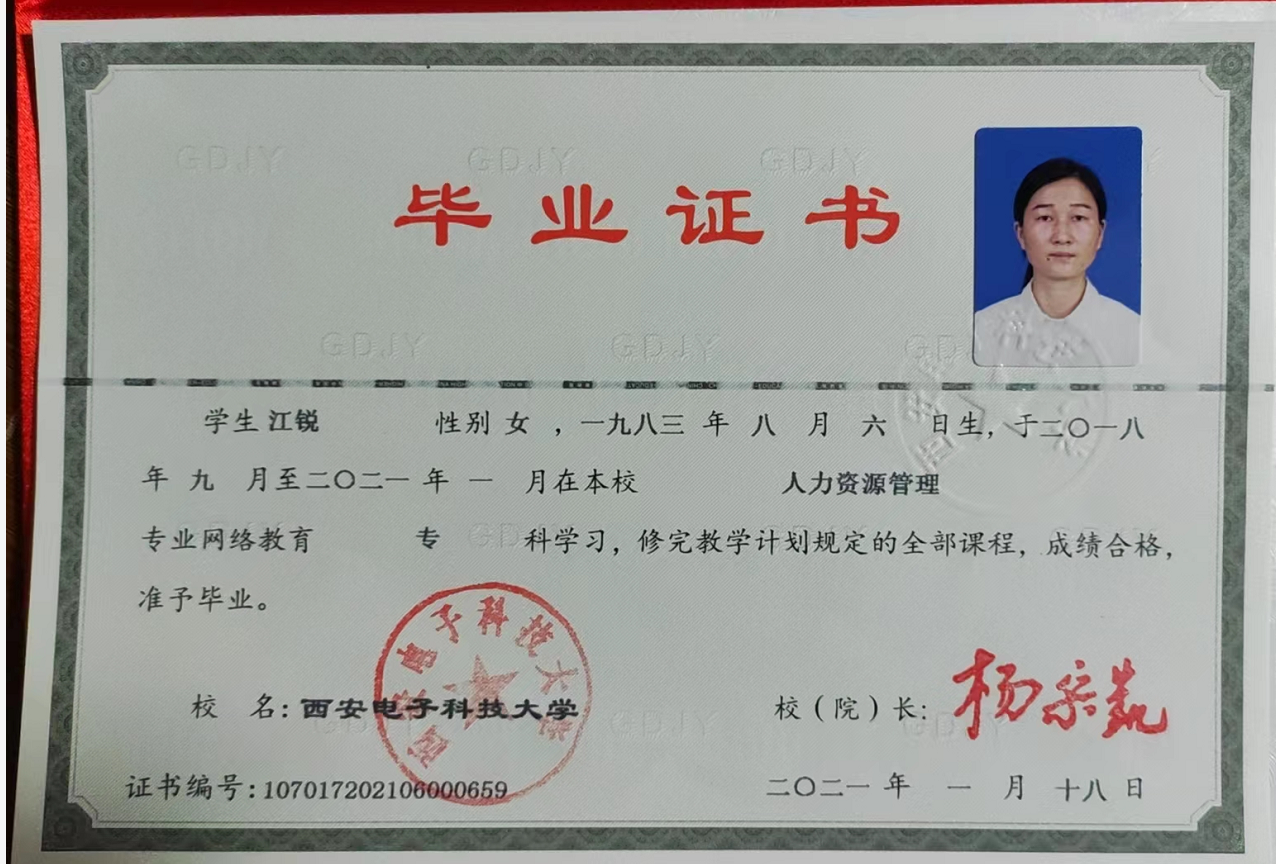 GDJY GDJY GDJY
毕业证书
GDJY GDJY GDJY
学生 江锐 性别 女 ，一九八三 年 八 月 六 日生，于二〇一八
年 九 月至二〇二一 年 一 月在本校 人力资源管理
专业网络教育 专 科学习，修完教学计划规定的全部课程，成绩合格，
准予毕业。
西安电子科技大学
校 名：西安电子科技大学 校（院）长：杨宗凯
证书编号：107017202106000659 二〇二一 年 一 月 十八 日